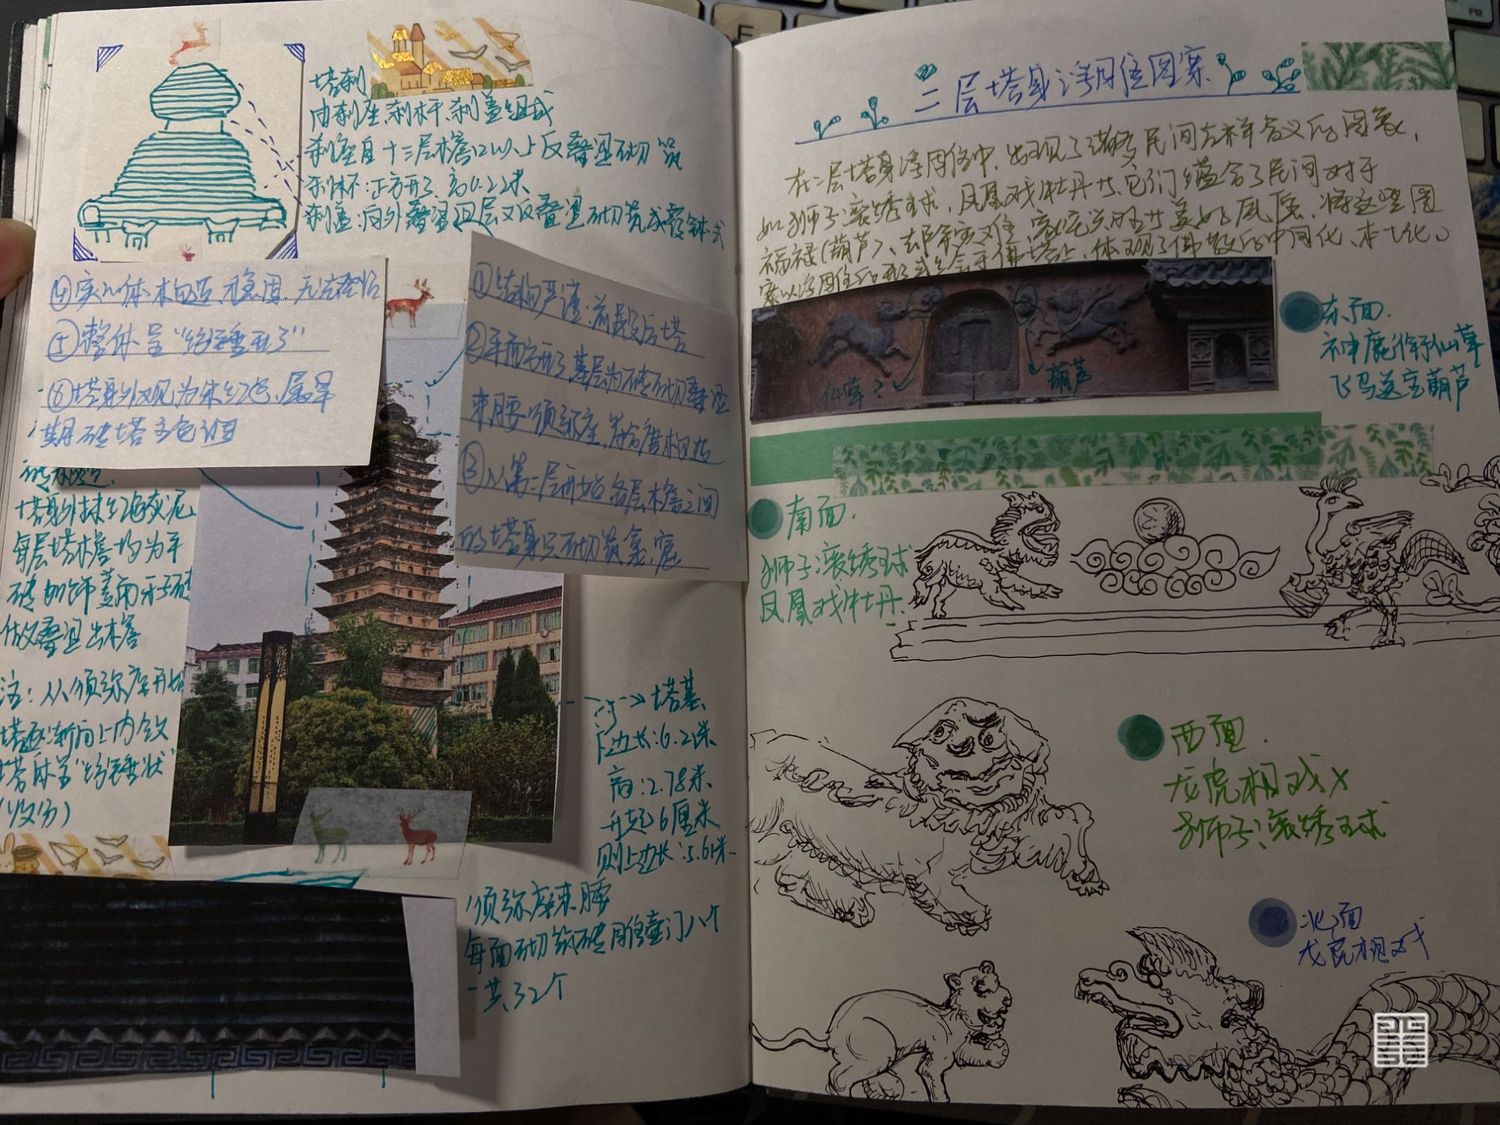 塔刹
由刹座.刹杆.刹盖组成
刹座自十三层檐口以上反叠涩砌筑
刹杯:正方形 高0.22米
刹盖:向外叠涩四层又反叠涩砌筑成覆钵式
④实心体构造,稳固.无法登临
⑤整体呈“纺锤形”
⑥塔身外观为朱红色,属早
期砖塔主色调
①结构严谨:前殿后塔
②平面方形 基层为砖砌叠涩
束腰须弥座.
③从第二层开始各层檐之间
的塔身只砌筑龛.窗
塔身外抹红色灰泥
每层塔檐均为平
砖加饰菱角牙子砖
做叠涩出檐
注:从须弥座开始
塔逐渐向上内敛
塔体呈“纺锤状”
(收分)
塔基
边长:6.2米
高:2.78米
升起6厘米
则上边长:5.61米
须弥座束腰
每面砌筑砖雕壸门八个
一共32个
二层塔身浮雕位图案
在二层塔身浮雕位中,出现了诸多民间吉祥含义的图象,
如狮子滚绣球,凤凰戏牡丹.它们蕴含了民间对于
福禄(葫芦)、
案以浮雕的形式 佛塔上,体现了佛教的中国化、本土化。
仙草?
葫芦
东面.
神鹿衔仙草
飞马送宝葫芦
南面.
狮子滚绣球
凤凰戏牡丹.
西面.
龙虎相戏×
狮子滚绣球
北面
龙虎相戏